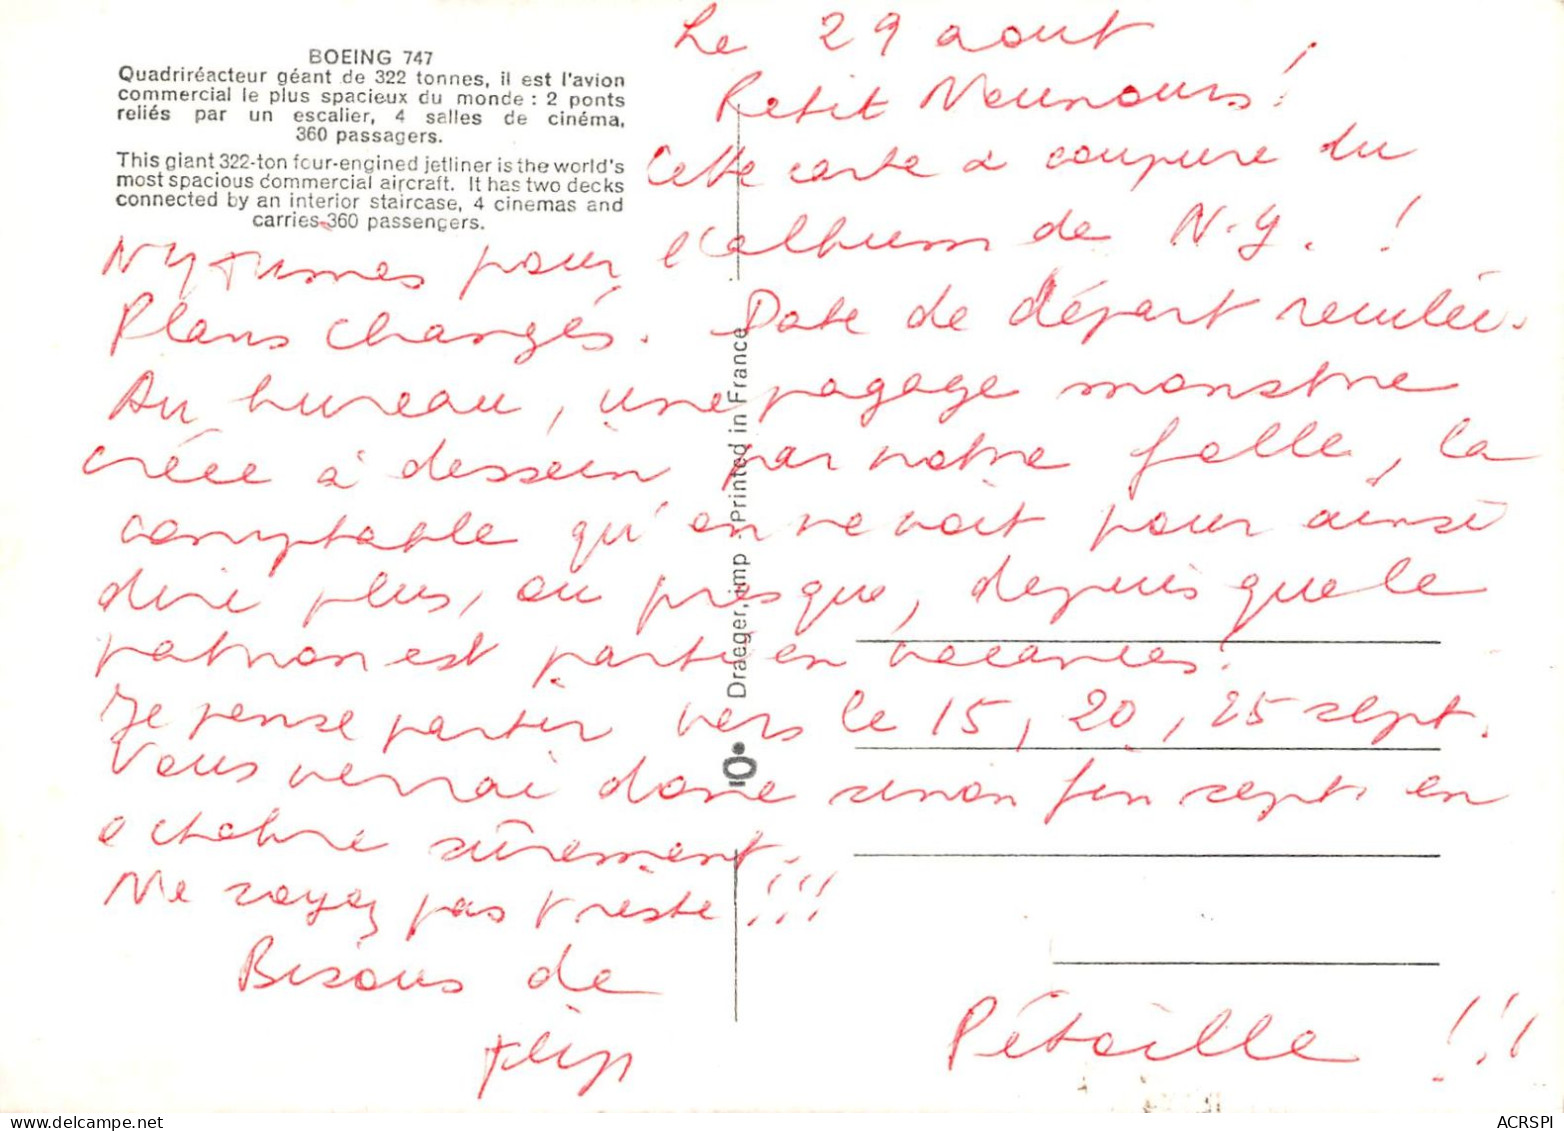 BOEING 747
Quadriréacteur géant de 322 tonnes, il est l'avion
commercial le plus spacieux du monde : 2 ponts
reliés par un escalier, 4 salles de cinéma,
360 passagers.
This giant 322-ton four-engined jetliner is the world's
most spacious commercial aircraft. It has two decks
connected by an interior staircase, 4 cinemas and
carries 360 passengers.
Le 29 aout
Petit Nounours !
Cette carte à coupure du
NY Times pour l'album de N.Y. !
Plans changés. Date de départ reculée.
Au bureau, une pagage monstre
créée à dessein par notre folle, la
comptable qu'on ne voit pour ainsi
dire plus, ou presque, depuis que le
patron est parti en vacances.
Je pense partir vers le 15, 20, 25 sept.
Vous verrai donc sinon fin sept. en
octobre sûrement.
Ne soyez pas triste !!!
Bisous de
Flip
Pétouille !!!
Draeger, imp - Printed in France
ACRSPI